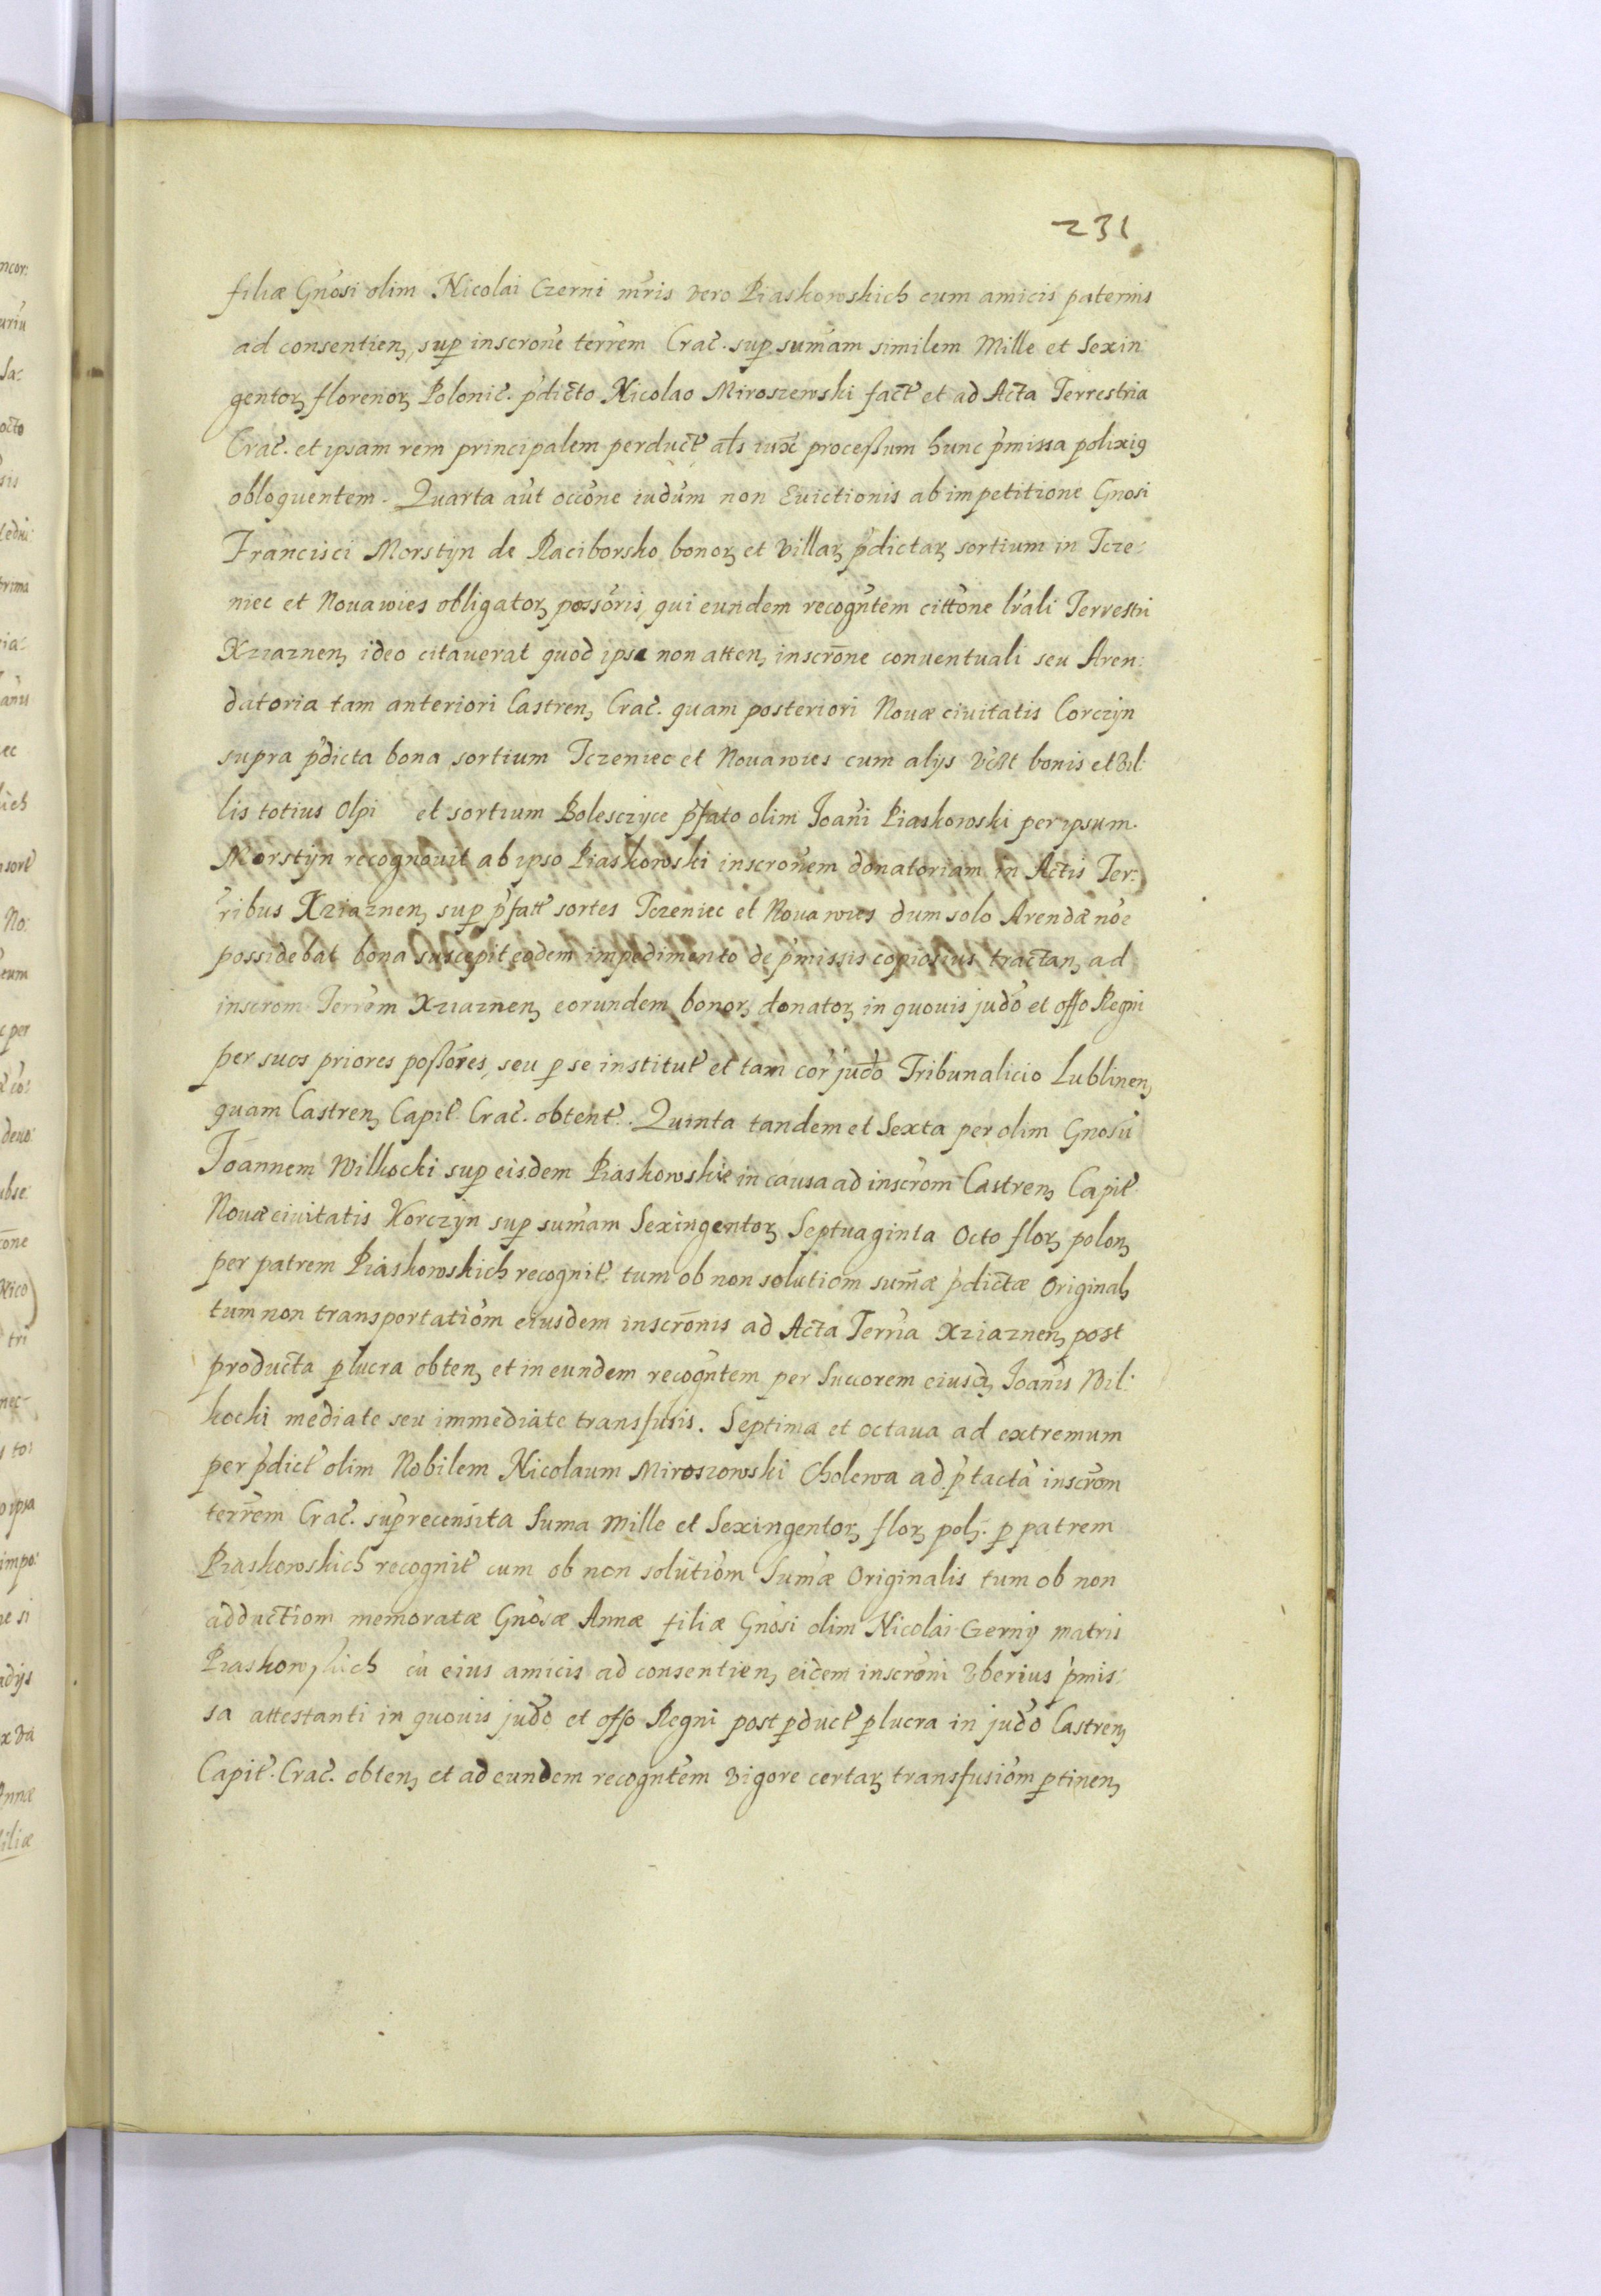 231
filiæ Gnosi olim Nicolai Czerni mris vero Piaskowskich cum amicis paternis
ad consentien, sup inscrone terrem Crac. sup sumam similem Mille et Sexin:
gentor florenor Polonic. pdicto Nicolao Miroszewski fact et ad Acta Terrestria
Crac. et ipsam rem principalem perduct als iux processum hunc pmissa polixig
obloquentem. Quarta aut occone iudum non Evictionis ab impetitione Gnosi
Francisci Morstyn de Raciborsko bonor et villar pdictar sortium in Tcze:
niec et Nouawies obligator possoris, qui eundem recogntem cittone lrali Terrestri
Xziaznen, ideo citauerat quod ipse non atten, inscrone conuentuali seu Aren:
datoria tam anteriori Castren, Crac. quam posteriori Nouæ ciuitatis Corczyn
supra pdicta bona sortium Tczeniec et Nouawies cum alijs bonis et vil:
lis totius Olpi et sortium Bolesczyce pfato olim Joani Piaskowski per ipsum.
Morstyn recognouit ab ipso Piaskowski inscronem donatoriam in Actis Ter:
ribus Xziaznen, sup pfatt sortes Tczeniec et Nouawies dum solo Arendæ noe
possidebat bona suscepit eodem impedimento de pmissis copiosius tractan, ad
inscrom Terrem Xziaznen, eorundem bonor, donator, in quouis judo et offo Regni
per suos priores possores, seu p se institut et tam cor judo Tribunalicio Lublinen,
quam Castren, Capit. Crac. obtent. Quinta tandem et Sexta per olim Gnosu
Joannem Wilkocki sup eisdem Piaskowskie in causa ad inscrom Castren, Capit.
Nouæ ciuitatis Korczyn sup sumam Sexingentor, Septuaginta Octo flor, polon,
per patrem Piaskowskich recognit. tum ob non solutiom sumæ pdictæ Original,
tum non transportatiom eiusdem inscronis ad Acta Terria Xziaznen, post
producta p lucra obten, et in eundem recogntem per Succorem eiusd, Joanis Vil:
kocki mediate seu immediate transfusis. Septima et octaua ad extremum
per pdict olim Nobilem Nicolaum Miroszowski Cholewa ad ptacta inscrom
terrem Crac. suprecensita Suma Mille et Sexingentor, flor, pol,. p patrem
Piaskowskich recognit cum ob non solutiom Sumæ Originalis tum ob non
adductiom memoratæ Gnosæ Annæ filiæ Gnosi olim Nicolai Czernij matris
Piaskowskich cu eius amicis ad consentien, eidem inscroni vberius pmis:
sa attestanti in quouis judo et offo Regni post pduct p lucra in judo Castren,
Capit. Crac. obten, et ad eundem recogntem vigore certar, transfusiom ptinen,